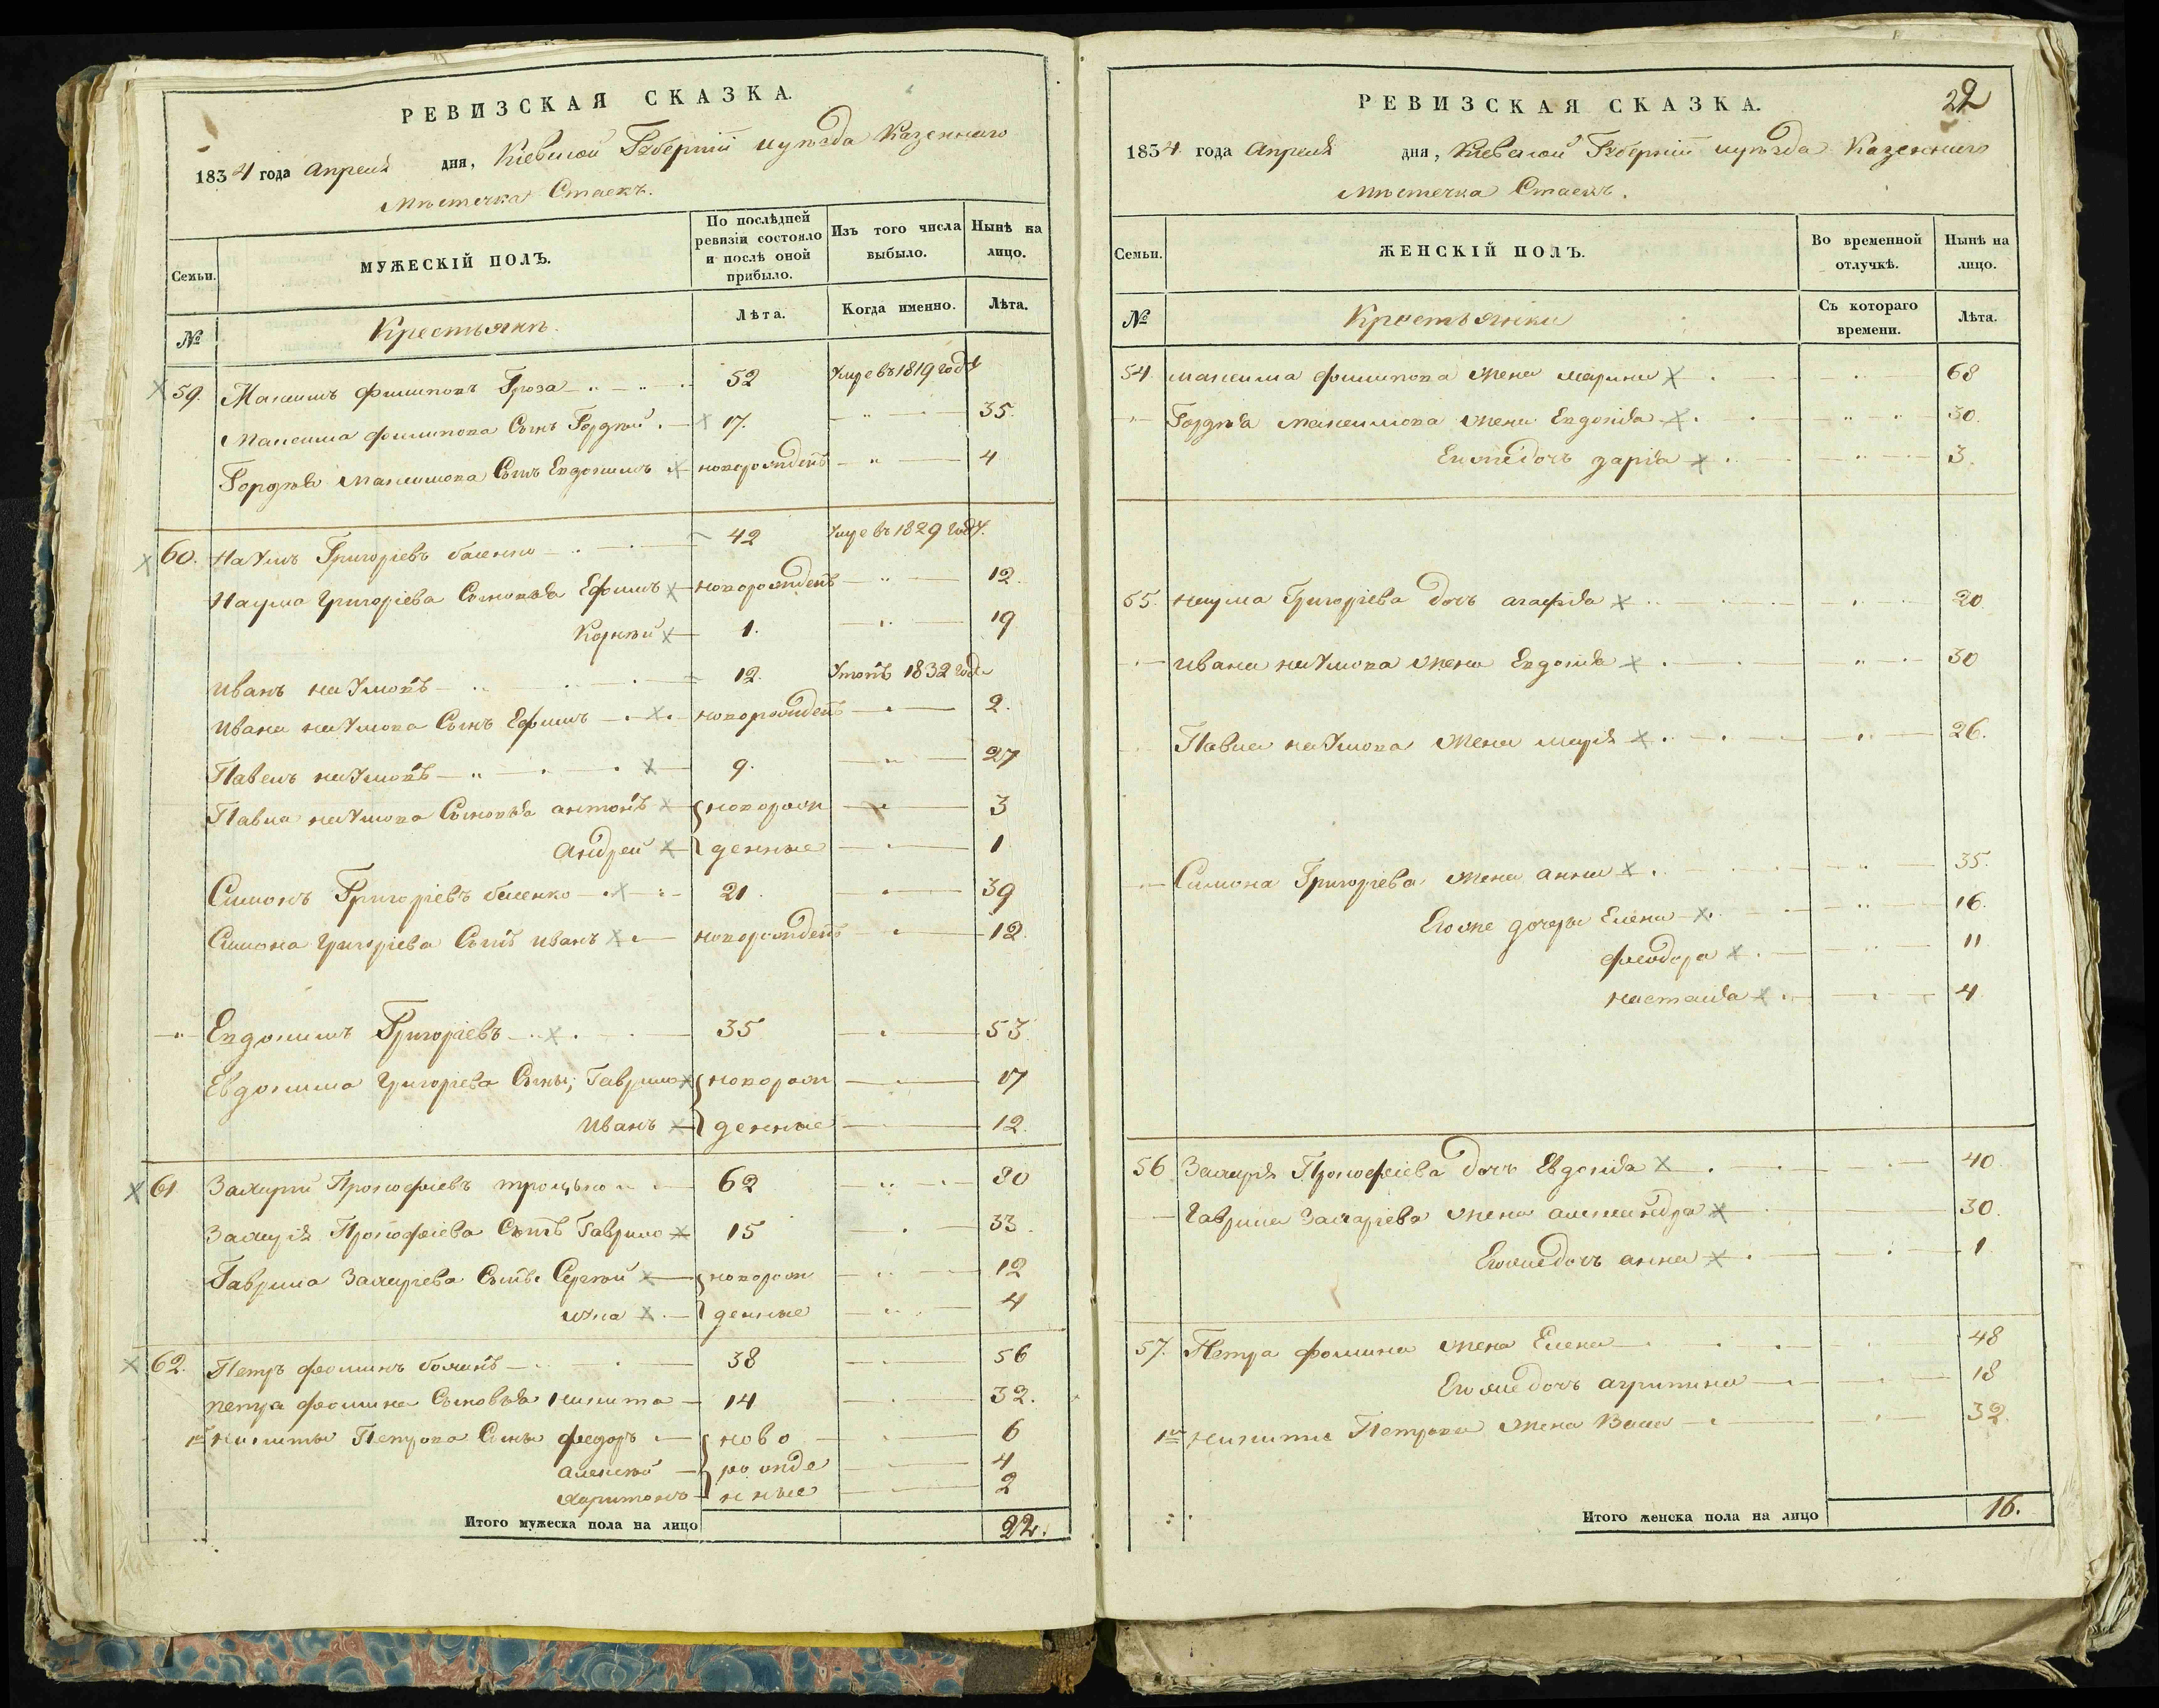 РЕВИЗСКАЯ СКАЗКА.
1834 года Апреля дня, Кіевской Губерніи и уѣзда Казеннаго
Мѣстечка Стаекъ.
Семьи.
МУЖЕСКІЙ ПОЛЪ.
По послѣдней ревизіи состояло и послѣ оной прибыло.
Изъ того числа выбыло.
Нынѣ на лицо.
№
Крестьянѣ.
Лѣта.
Когда именно.
Лѣта.
59. Максимъ Филиповъ Гроза 52 Умре въ 1819 году
Максима Филипова Сынъ Гордѣй 17. 35.
Гордѣя Максимова Сынъ Евдокимъ новорожденъ 4
60. Наумъ Григоріевъ баленко 42 Умре въ 1829 году.
Наума Григоріева Сыновья Ефимъ новорожденъ 12.
Корнѣй 1. 19
Иванъ наумовъ 12. 1832 года
Ивана наумова Сынъ Ефимъ новорожденъ 2.
Павелъ наумовъ 9. 27
Павла наумова Сыновья антонъ новорож 3
Андрей денные 1
Симонъ Григоріевъ баленко 21. 39
Симона Григоріева Сынъ иванъ новорожденъ 12.
Евдокимъ Григоріевъ 35 53.
Евдокима Григоріева Сыны, Гаврило новорож 17
Иванъ денные 12.
61 Захарій Прокофіевъ 62 80
Захарія Прокофіева Сынъ Гаврило 15 33.
Гаврила Захаріева Сынъ Сергѣй новорож 12
денные 4
62. Петръ феоминъ 38 56
петра феомина Сыновья никита 14 32.
никиты Петрова Сыны федоръ ново 6
алексѣй рожде 4
харитонъ нные 2
Итого мужеска пола на лицо 22.
22
РЕВИЗСКАЯ СКАЗКА.
1834 года Апреля дня, Кіевской Губерніи и уѣзда Казеннаго
Мѣстечка Стаекъ.
Семьи.
ЖЕНСКІЙ ПОЛЪ.
Во временной отлучкѣ.
Нынѣ на лицо.
№
Крестьянки
Съ котораго времени.
Лѣта.
54 максима филипова жена марина 68
Гордѣя максимова жена Евдокія 30.
Егоже дочь 3.
55. наума Григоріева дочь агафія 20
ивана наумова жена Евдокія 30
Павла наумова жена марія 26.
Симона Григоріева жена анна 35.
Егоже дочеры Елена 16.
феодора 11
настасія 4
56 Захарія Прокофіева дочь Евдокія 40
Гаврила Захаріева жена александра 30.
Егоже дочь анна 1
57. Петра фомина жена Елена 48
Егоже дочь агрипина 18
никиты Петрова жена 32
Итого женска пола на лицо 16.